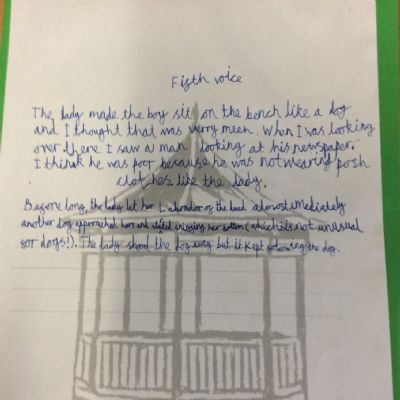 Fifth voice
The lady made the boy sit on the bench like a dog
and I thought that was verry meen. When I was looking
over there I saw a man looking at his newspaper.
I think he was poor because he was not wearing posh
clothes like the lady.
Before long, the lady let her Labrador of the lead almost imediately
another dog approached him and started sniffing her bottom (which is not unusual
for dogs!). The lady shood the dog away but it kept following the dog.